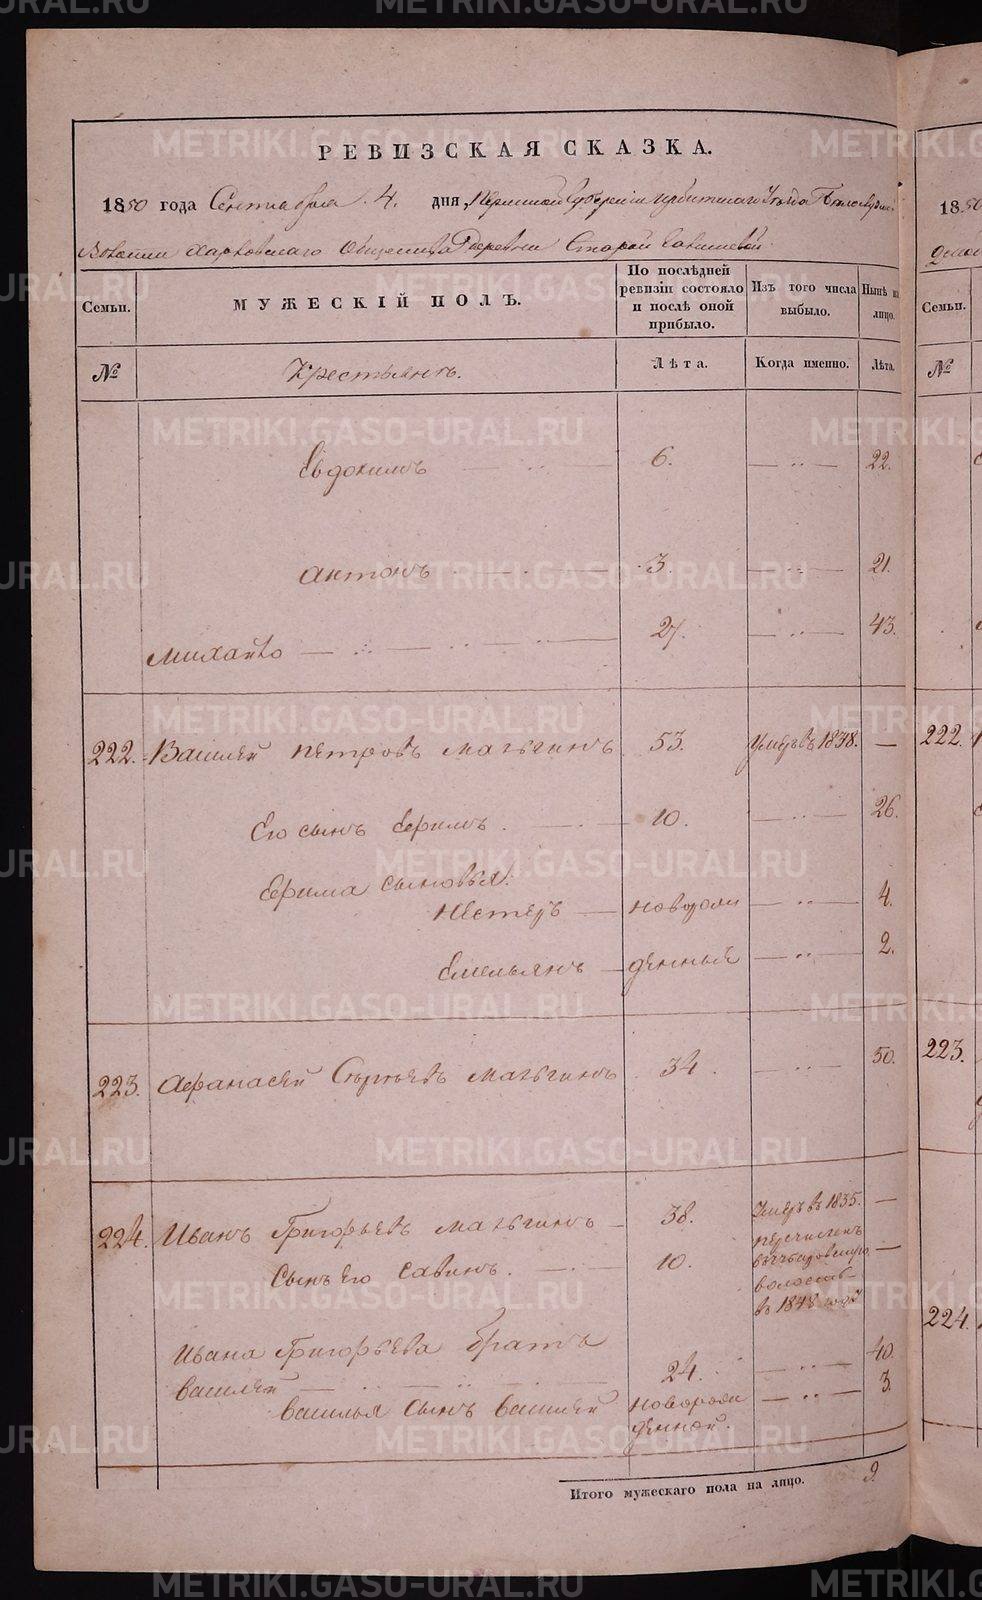 РЕВИЗСКАЯ СКАЗКА.
1850 года Сентября 4. дня, Пермской Губернии Ирбитскаго Уезда
Волости Харловскаго Общества Деревни Старой
Семьи. МУЖЕСКІЙ ПОЛЪ. По послѣдней ревизіи состояло и послѣ оной прибыло. Изъ того числа выбыло. Нынѣ на лицо.
№ Крестьянъ. Лѣта. Когда именно. Лѣта.
Евдокимъ 6. 22.
Антонъ 3. 21.
Михайло 27. 43.
222. Василей Петровъ Мальгинъ 53. Умеръ въ 1838. —
Его сынъ Ефимъ. 10. 26.
Ефима сыновья:
Нестеръ — новорож — 4.
Емельянъ — денныя — 2.
223. Афанасей Сергѣевъ Мальгинъ 34. 50.
224. Иванъ Григорьевъ Мальгинъ — 38. Умеръ въ 1835. —
Сынъ его Савинъ. 10. перечисленъ
волость
въ 1848 году —
Ивана Григорьева братъ
Василей 24. 40.
Василья сынъ Василей новорож 3.
денной.
Итого мужескаго пола на лицо. 9.
1850
Семьи.
№
222.
223.
224.
METRIKI.GASO-URAL.RU